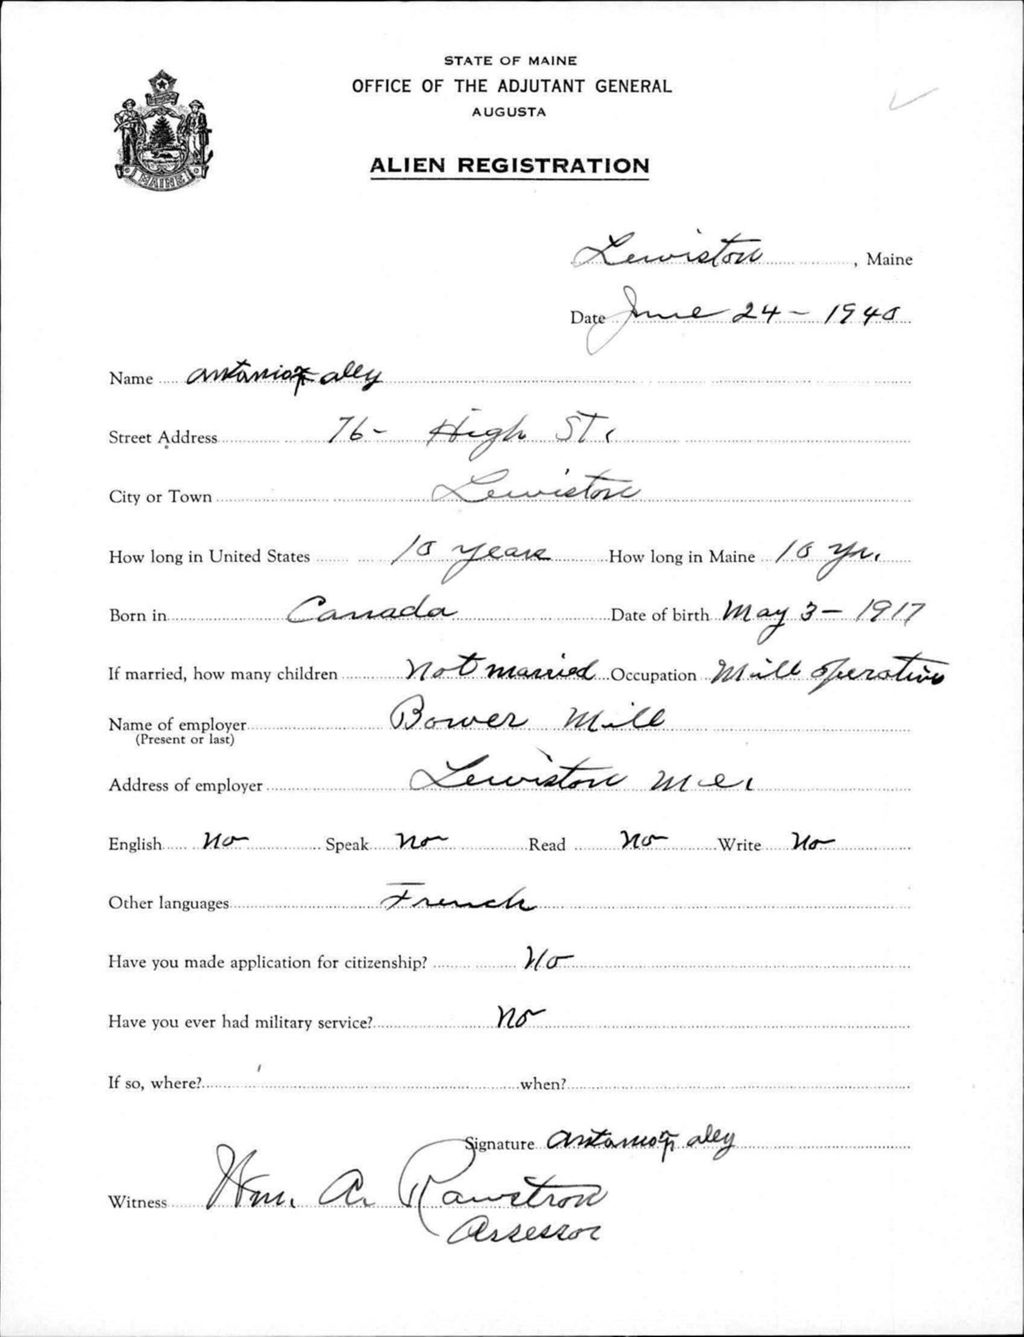 STATE OF MAINE
OFFICE OF THE ADJUTANT GENERAL
AUGUSTA
MAINE
ALIEN REGISTRATION
Lewiston, Maine
Date June 24 - 1940
Name aley
Street Address 76 - High St.
City or Town Lewiston
How long in United States 10 years How long in Maine 10 yr.
Born in Canada Date of birth May 3 - 1917
If married, how many children Not married Occupation Mill operative
Name of employer Bower Mill
(Present or last)
Address of employer Lewiston Me.
English No Speak No Read No Write No
Other languages French
Have you made application for citizenship? No
Have you ever had military service? No
If so, where? when?
Signature aley
Witness Wm. A. Rawstron
Assessor